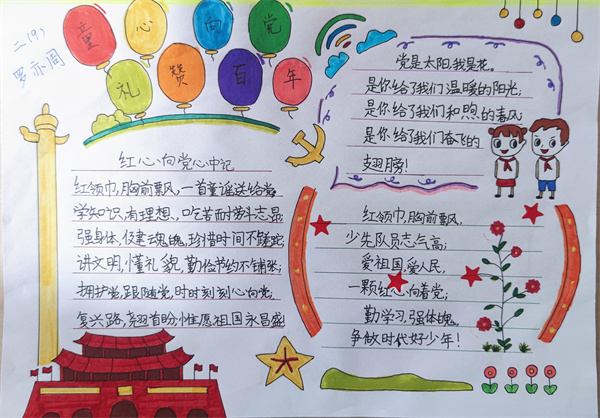 二(9)
罗亦周
童心向党
礼赞百年
红心向党心中记
红领巾,胸前飘,一首童谣送给党;
学知识,有理想,吃苦耐劳斗志昂;
强身体,健魂魄,珍惜时间不蹉跎;
讲文明,懂礼貌,勤俭节约不铺张;
拥护党,跟随党,时时刻刻心向党,
复兴路,翘首盼,惟愿祖国永昌盛
党是太阳,我是花。
是你给了我们温暖的阳光;
是你给了我们和煦的春风
是你给了我们奋飞的
翅膀!
红领巾,胸前飘,
少先队员志气高;
爱祖国,爱人民,
一颗红心向着党;
勤学习,强体魄,
争做时代好少年!